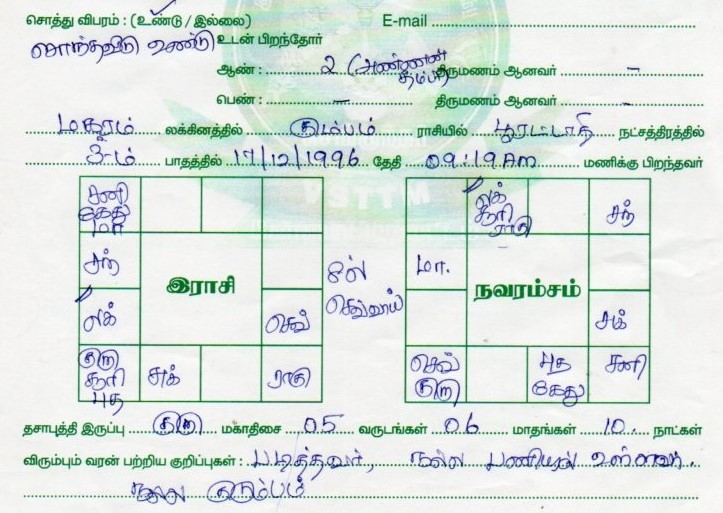 சொத்து விபரம் : (உண்டு / இல்லை) E-mail
சொந்தவீடு உண்டு உடன் பிறந்தோர்
ஆண் : 2 (அண்ணன் தம்பி) திருமணம் ஆனவர் –
பெண் : – திருமணம் ஆனவர் –
மகரம் லக்கினத்தில் கும்பம் ராசியில் பூரட்டாதி நட்சத்திரத்தில்
3-ம் பாதத்தில் 17/12/1996 தேதி 09:19 Am மணிக்கு பிறந்தவர்
சனி கேது மா
சந்
லக்
குரு சூரி புத
சுக்
ராகு
செவ்
இராசி
செவ்வாய்
லக் சூரி ராகு
சந்
மா.
நவரம்சம்
சுக்
செவ் குரு
புத கேது
சனி
தசாபுத்தி இருப்பு குரு மகாதிசை 05 வருடங்கள் 06 மாதங்கள் 10 நாட்கள்
விரும்பும் வரன் பற்றிய குறிப்புகள் : படித்தவர், நல்ல பணியில் உள்ளவர்.
நல்ல குடும்பம்